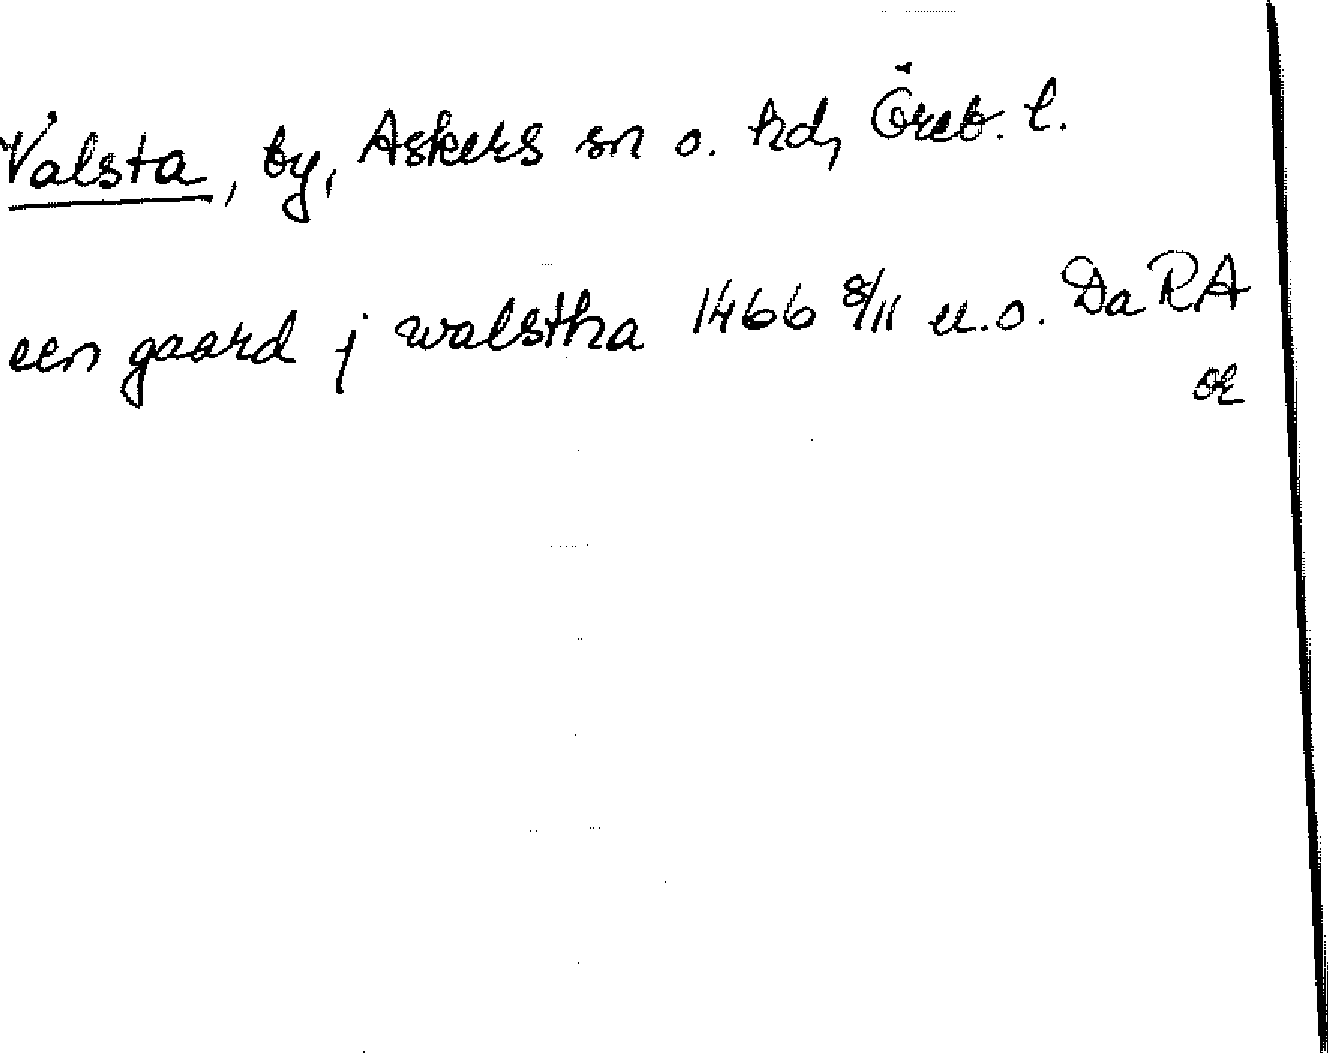 Valsta, by, Askers sn o. hd, Öreb. l.
een gaard j walstha 1466 8/11 u.o. Da RA
or